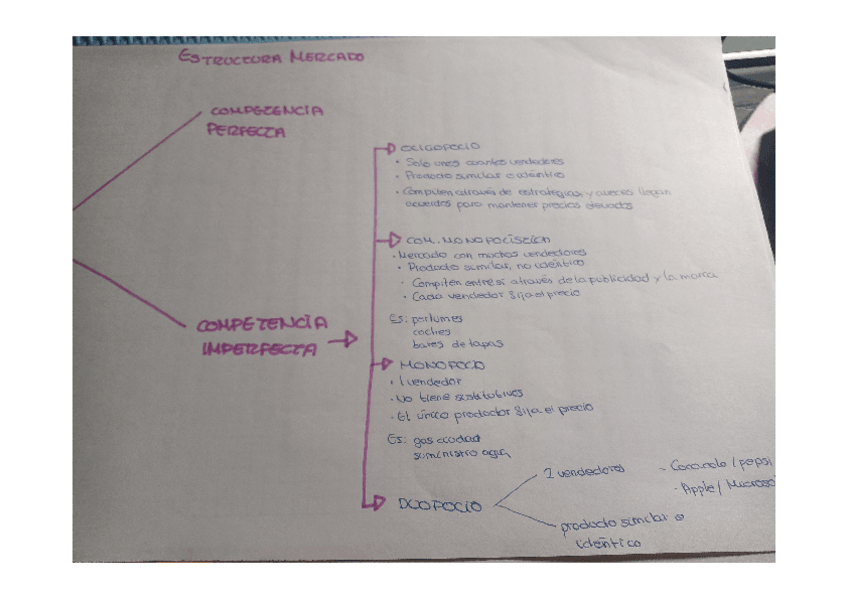 ESTRUCTURA MERCADO
COMPETENCIA
PERFECTA
OLIGOPOLIO
• Solo unos cuantos vendedores
• Producto similar o idéntico
• Compiten através de estrategias y aveces llegan
acuerdos para mantener precios elevados
COM. MONOPOLÍSTICA
• Mercado con muchos vendedores
• Producto similar, no idéntico
• Compiten entre sí através de la publicidad y la marca
• Cada vendedor fija el precio
Es: perfumes
coches
bares de tapas
COMPETENCIA
IMPERFECTA
MONOPOLIO
• 1 vendedor
• No tiene sustitutivos
• El único productor fija el precio
Es: gas ciudad
suministro agua
DUOPOLIO
2 vendedores
- Cocacola / pepsi
- Apple / Microso
producto similar o
idéntico